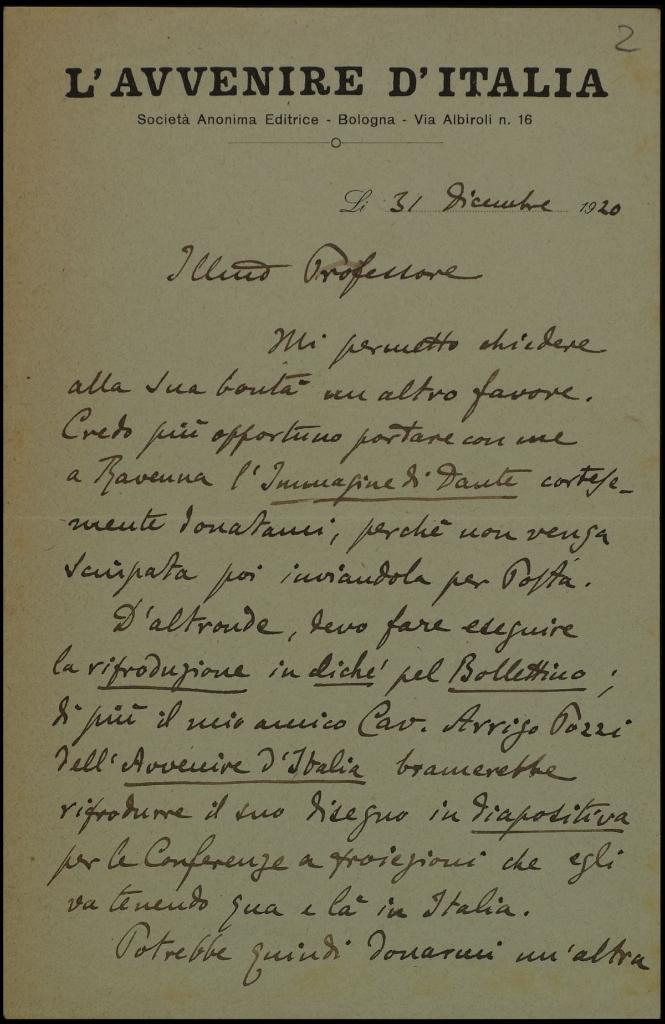 2
L'AVVENIRE D'ITALIA
Società Anonima Editrice - Bologna - Via Albiroli n. 16
Li 31 Dicembre 1920
Illmo Professore
Mi permetto chiedere
alla sua bontà un altro favore.
Credo più opportuno portare con me
a Ravenna l'Immagine di Dante cortese-
mente donatami, perchè non venga
sciupata poi inviandola per Posta.
D'altronde, devo fare eseguire
la riproduzione in clichè pel Bollettino;
di più il mio amico Cav. Arrigo Pozzi
dell'Avvenire d'Italia bramerebbe
riprodurre il suo disegno in diapositiva
per le Conferenze a proiezioni che egli
va tenendo qua e là in Italia.
Potrebbe quindi donarmi un'altra